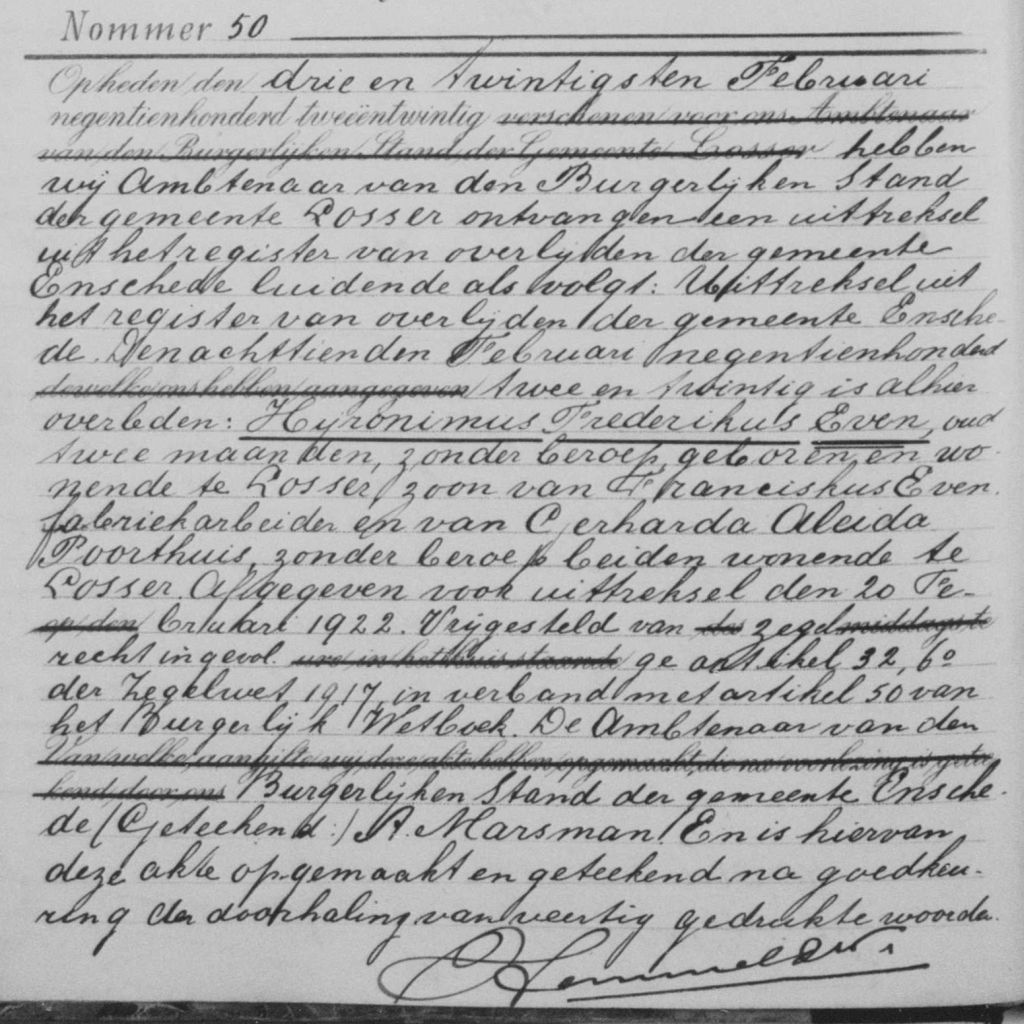 Nommer 50
Opheden den drie en twintigsten Februari
negentienhonderd tweeëntwintig verschenen voor ons Ambtenaar
van den Burgerlijken Stand der Gemeente Losser hebben
wij Ambtenaar van den Burgerlijken Stand
der gemeente Losser ontvangen een uittreksel
uit het register van overlijden der gemeente
Enschede luidende als volgt: Uittreksel uit
het register van overlijden der gemeente Ensche-
de. Den achttienden Februari negentienhonderd
dewelke ons hebben aangegeven twee en twintig is alhier
overleden: Hyronimus Frederikus Even, oud
twee maanden, zonder beroep, geboren en wo-
nende te Losser, zoon van Franciskus Even,
fabriekarbeider en van Gerharda Aleida
Poorthuis, zonder beroep beiden wonende te
Losser. Afgegeven voor uittreksel den 20 Fe-
op den bruari 1922. Vrijgesteld van des zegel middags te
recht ingevol. ure in het huis staande ge artikel 32, 6o
der Zegelwet 1917, in verband met artikel 50 van
het Burgerlijk Wetboek. De Ambtenaar van den
Van welke aangifte wij deze akte hebben opgemaakt, die na voorlezing is getee
kend door ons Burgerlijken Stand der gemeente Ensche-
de (Geteekend:) A. Marsman. En is hiervan
deze akte opgemaakt en geteekend na goedkeu-
ring der doorhaling van veertig gedrukte woorden.